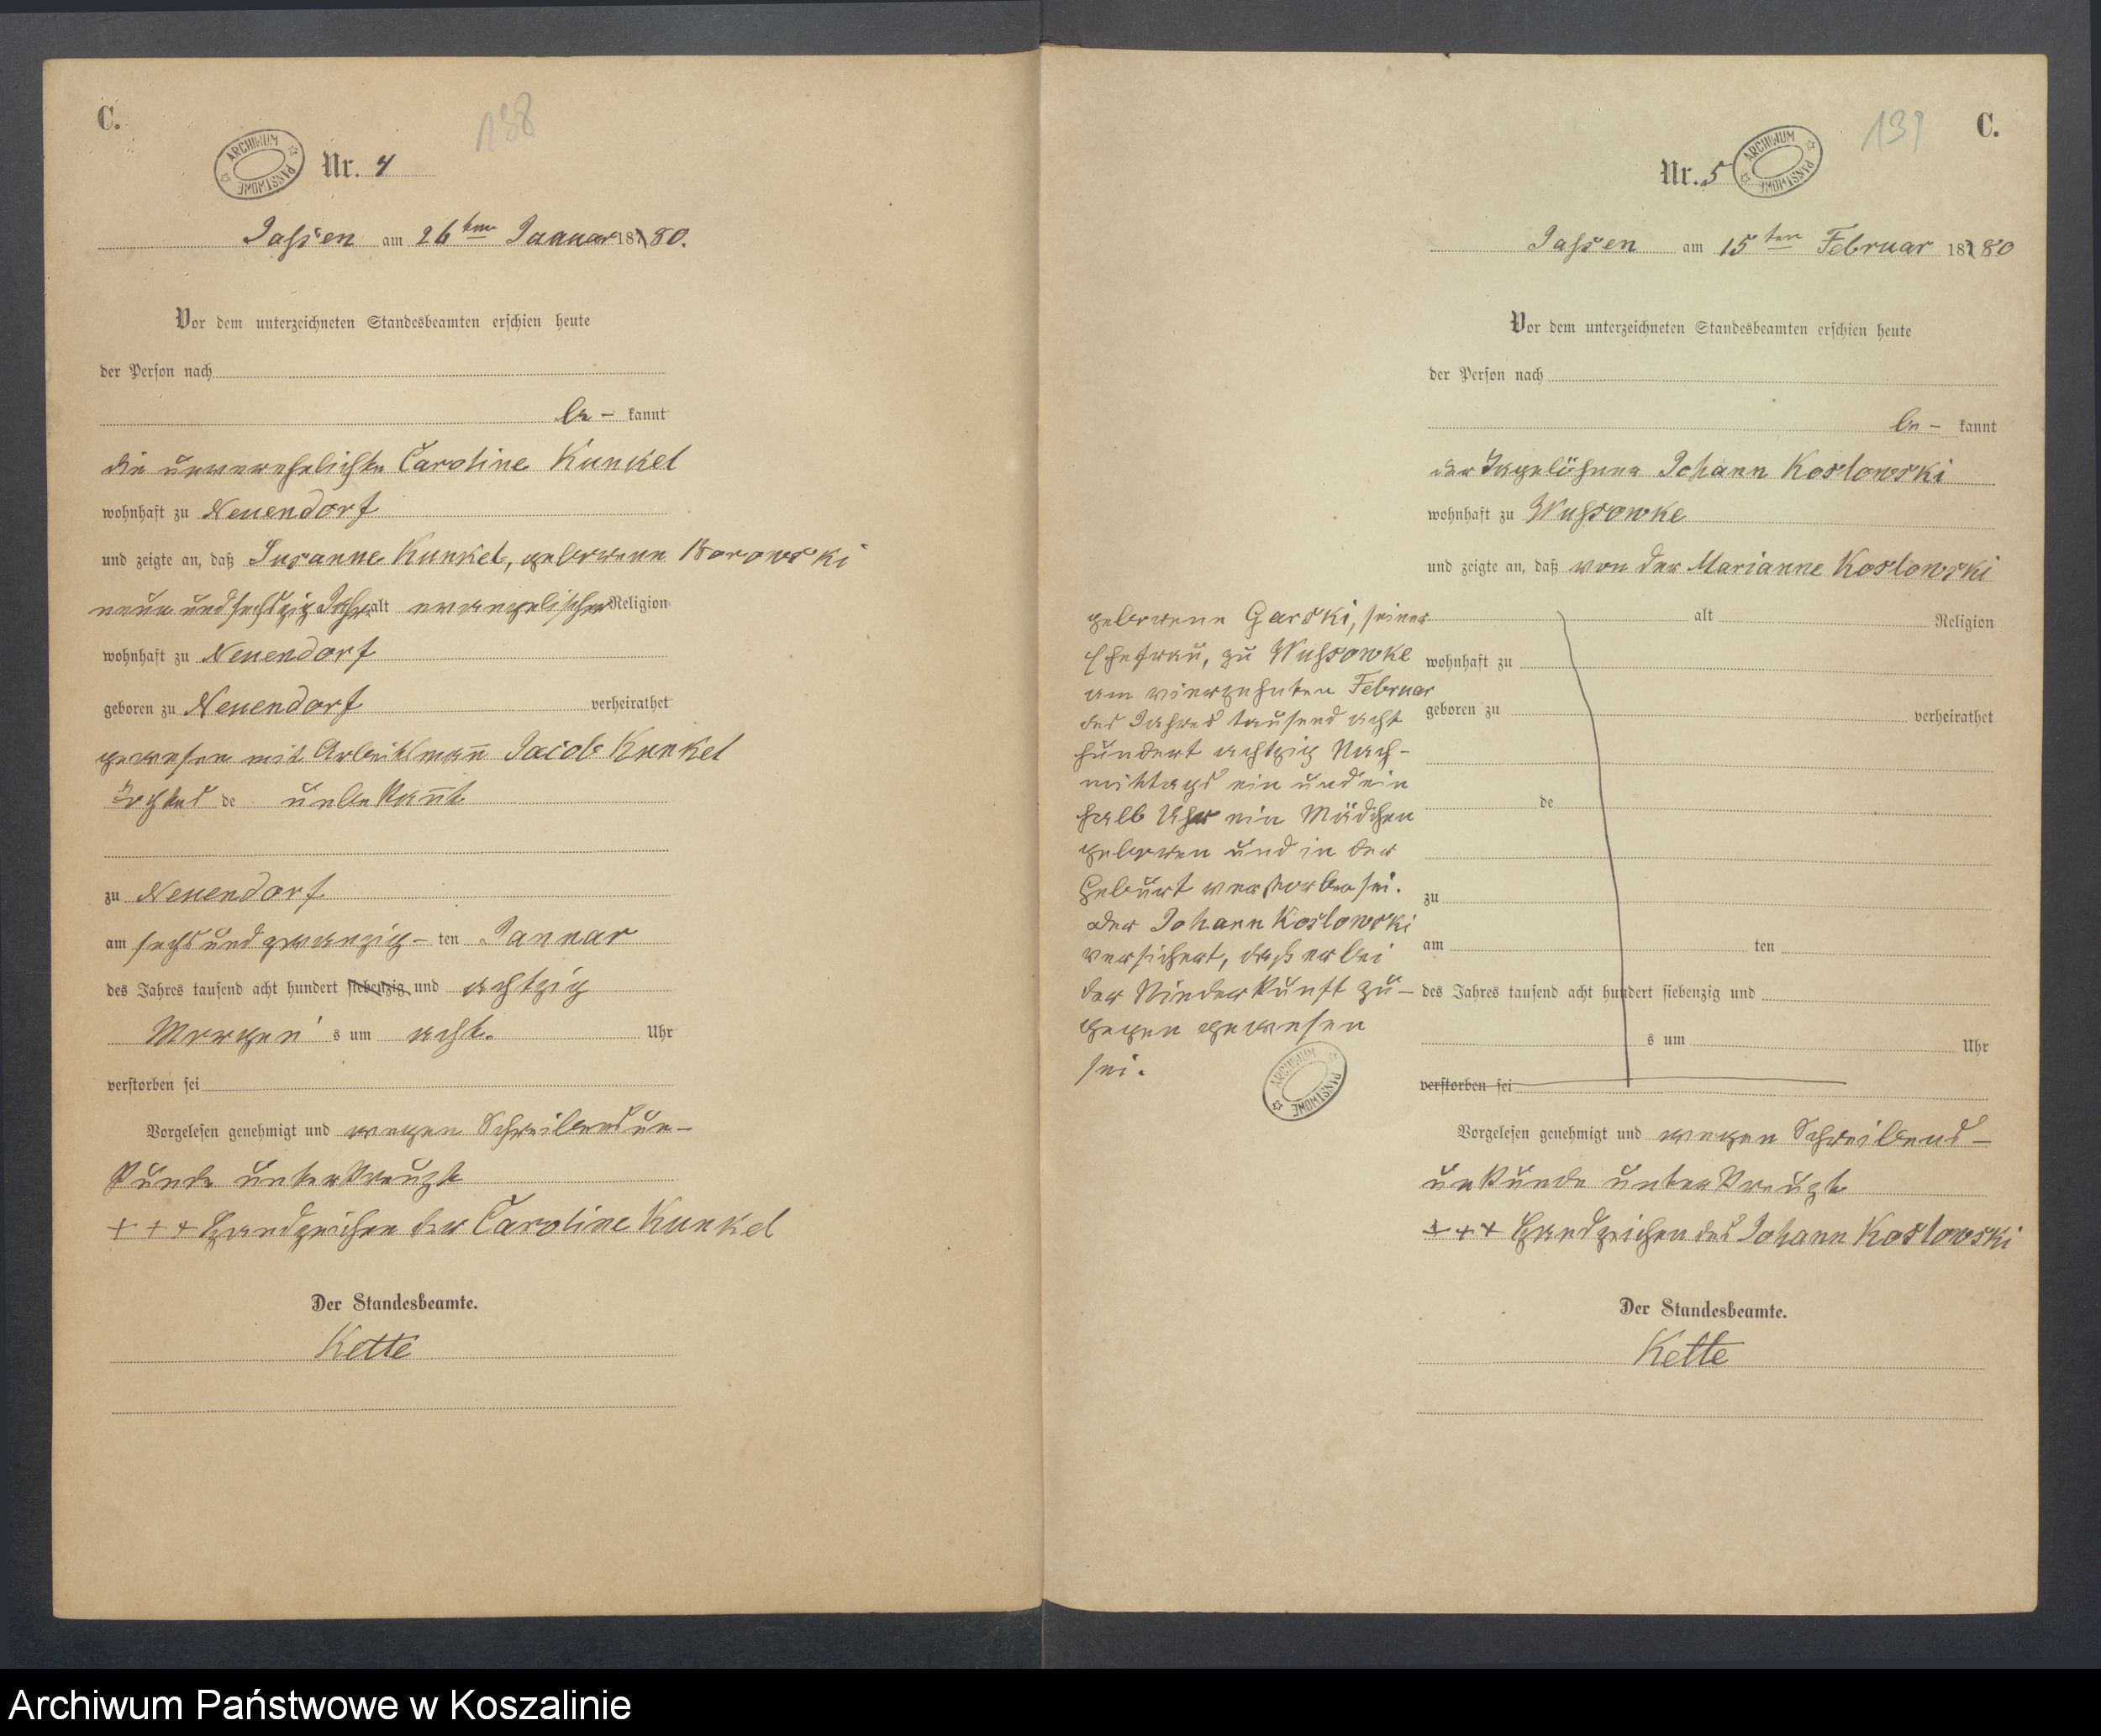 C.
138
ARCHIWUM PAŃSTWOWE
Nr. 4
Jassen am 26ten Januar 1880.
Vor dem unterzeichneten Standesbeamten erschien heute
der Person nach
be- kannt
die unverehelichte Caroline Kunkel
wohnhaft zu Neuendorf
und zeigte an, daß Susanne Kunkel, geborene Borowski
neun und sechszig Jahr alt evangelischer Religion
wohnhaft zu Neuendorf
geboren zu Neuendorf verheirathet
gewesen mit Arbeitsmann Jacob Kunkel
Tochter de unbekannt
zu Neuendorf
am sechs und zwanzig- ten Januar
des Jahres tausend acht hundert siebenzig und achtzig
Morgen s um acht. Uhr
verstorben sei
Vorgelesen genehmigt und wegen Schreibensun-
kunde unterkreuzt
+ + + Handzeichen der Caroline Kunkel
Der Standesbeamte.
Kette
139
C.
Nr. 5
ARCHIWUM PAŃSTWOWE
Jassen am 15ten Februar 1880
Vor dem unterzeichneten Standesbeamten erschien heute
der Person nach
be- kannt
der Tagelöhner Johann Koslowski
wohnhaft zu Wussowke
und zeigte an, daß von der Marianne Koslowski
geborene Garski, seiner
Ehefrau, zu Wussowke
am vierzehnten Februar
des Jahres tausend acht
hundert achtzig Nach-
mittags ein und ein
halb Uhr ein Mädchen
geboren und in der
Geburt verstorben sei.
Der Johann Koslowski
versichert, daß er bei
der Niederkunft zu-
gegen gewesen
sei.
ARCHIWUM PAŃSTWOWE
alt Religion
wohnhaft zu
geboren zu verheirathet
de
zu
am ten
des Jahres tausend acht hundert siebenzig und
s um Uhr
verstorben sei
Vorgelesen genehmigt und wegen Schreibens-
unkunde unterkreuzt
+ + + Handzeichen des Johann Koslowski
Der Standesbeamte.
Kette
Archiwum Państwowe w Koszalinie